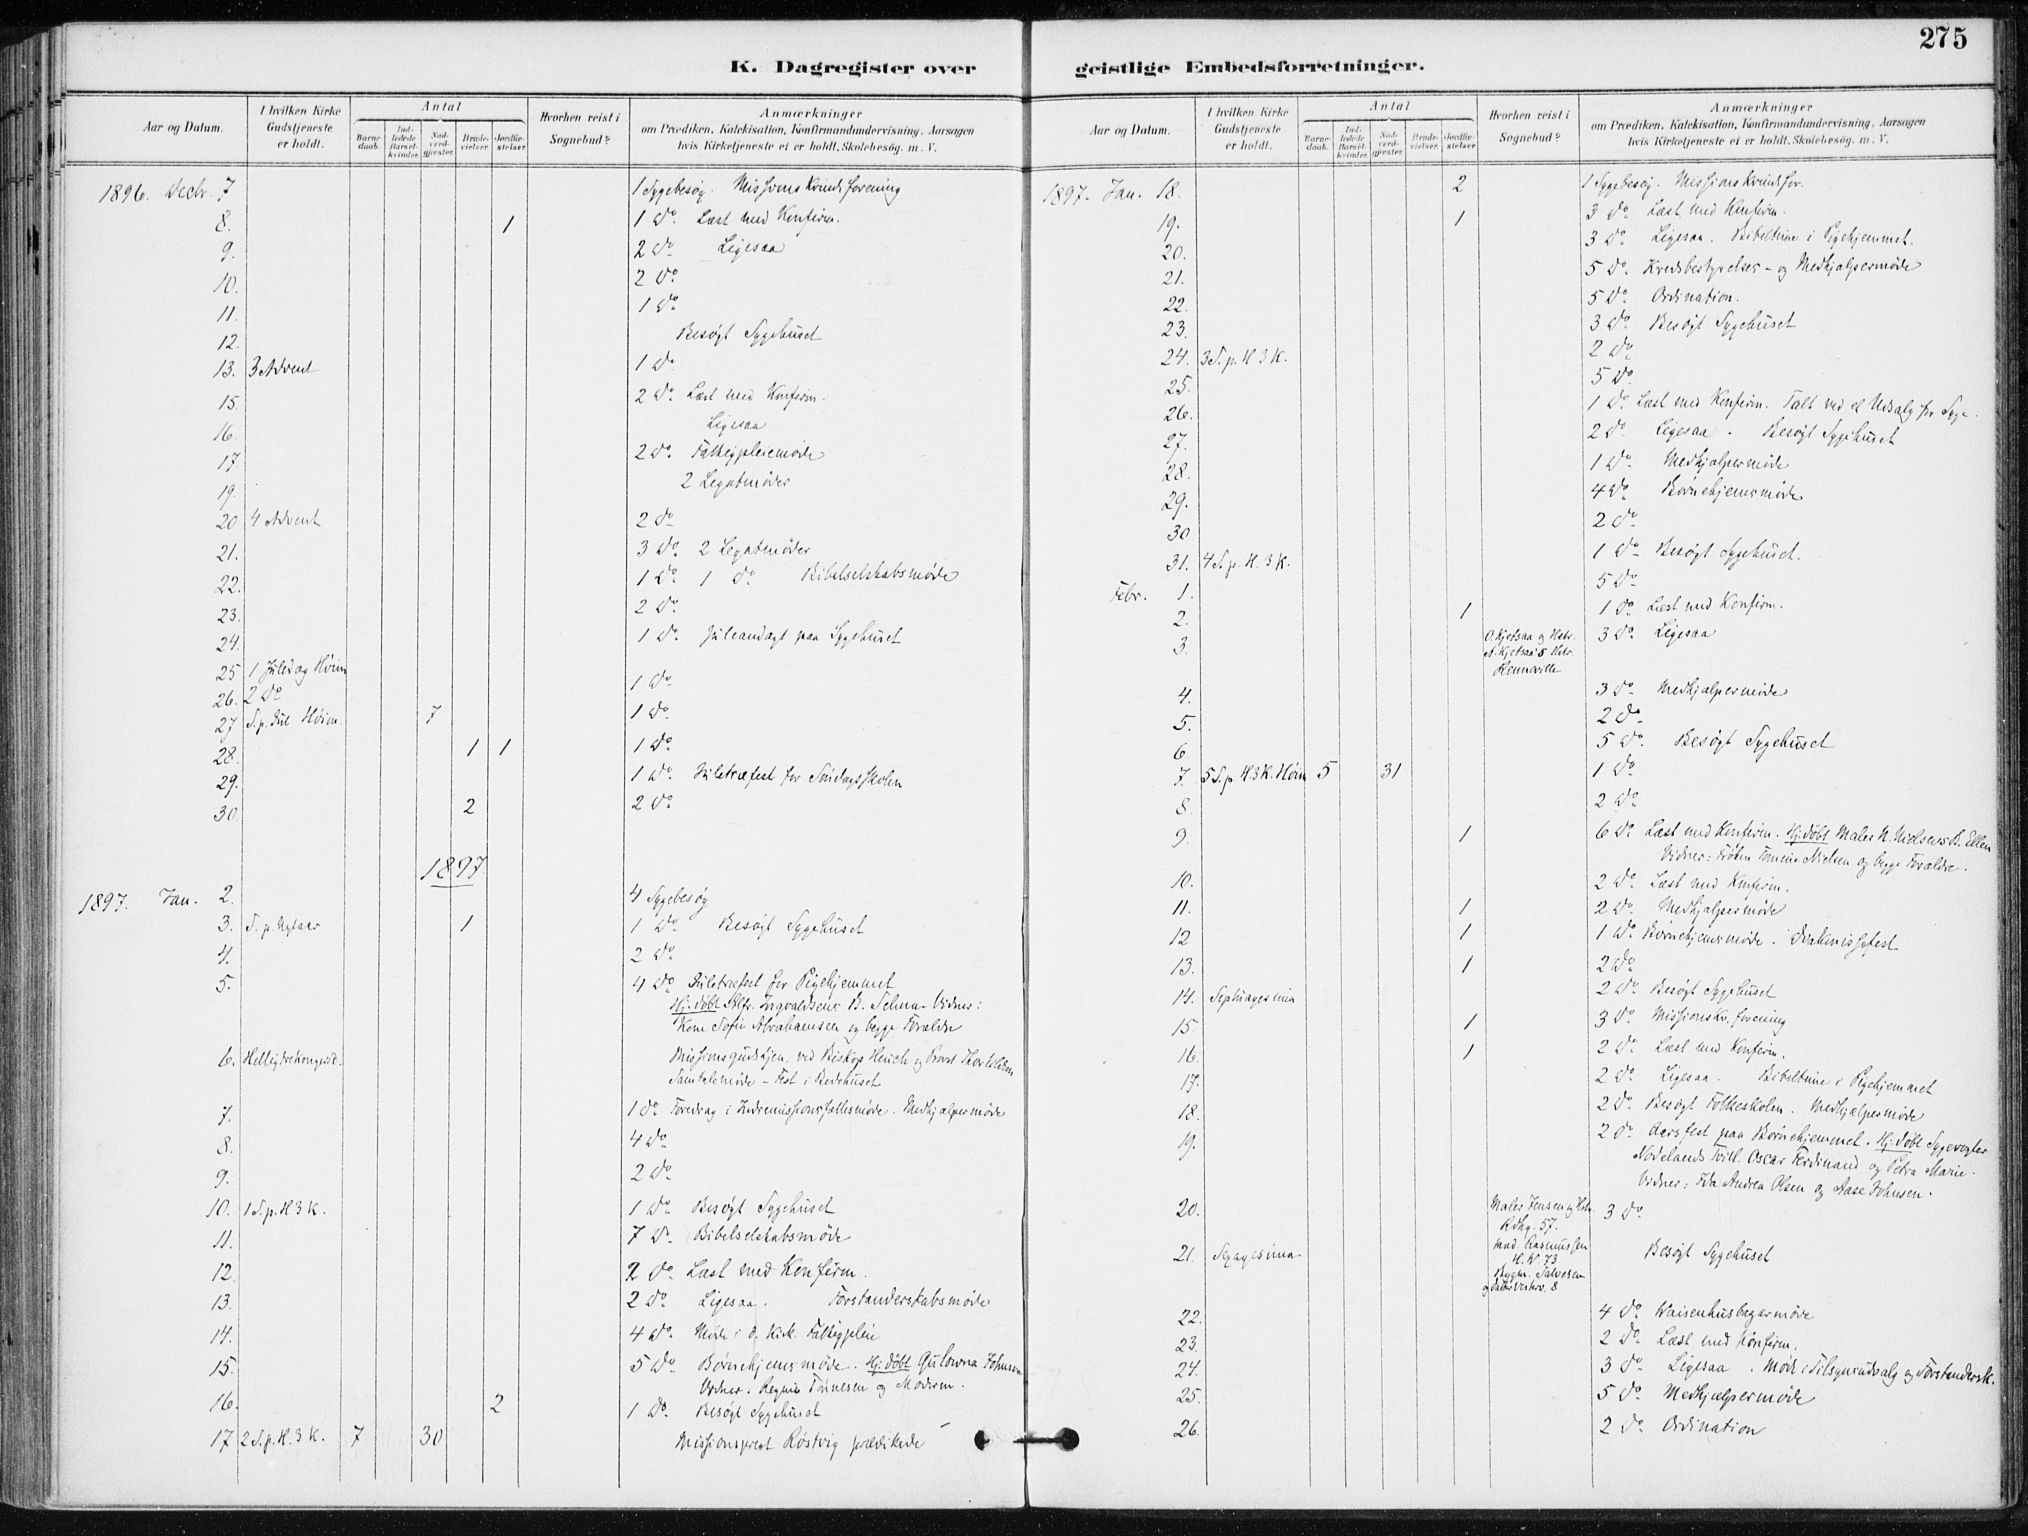 275
K. Dagregister over geistlige Embedsforretninger.
Aar og Datum. I hvilken Kirke Gudstjeneste er holdt. Antal Barnedaab. Indledede Barselkvinder. Nadverdgjester. Brudevielser. Jordfæstelser. Hvorhen reist i Sognebud? Anmærkninger om Prædiken, Katekisation, Konfirmandundervisning, Aarsagen hvis Kirketjeneste ei er holdt, Skolebesøg. m. V.
1896. Decbr. 7 1 Sygebesøg. Missions Kvindeforening
8. 1 1 Do. Læst med Konfirm.
9. 2 Do Ligesaa
10. 2 Do
11. 1 Do
12. Besøgt Sygehuset
13. 3 Advent 1 Do
15. 2 Do. Læst med Konfirm.
16. Ligesaa
17. 2 Do. Fattigpleiemøde
19. 2 Legatmøder
20 4 Advent 2 Do
21. 3 Do. 2 Legatmøder
22. 1 Do 1 Do Bibelselskabsmøde
23. 2 Do.
24. 1 Do. Juleandagt paa Sygehuset
25 1 Juledag Høim
26. 2 Do 1 Do
27 S.p. Jul Høim. 7 1 Do.
28. 1 1 1 Do
29. 1 Do. Juletræfest for Søndagsskolen
30. 2 2 Do
1897
1897. Jan. 2. 4 Sygebesøg
3. S. p. Nytaar 1 1 Do. Besøgt Sygehuset
4. 2 Do
5. 4 Do Juletræfest for Pigehjemmet
Hj. døbt Alfr. Ingvaldsens B. Selma. Vidner:
Kone Sofie Abrahamsen og begge Forældre
6. Helligtrekongersd. Missionsgudstjen. ved Biskop Heuch og Provst
Samtalemøde – Fest i Bedehuset
7. 1 Do. Foredrag i Indremissionsfællesmøde. Medhjælpermøde
8. 4 Do
9. 2 Do.
10. 1 S. p. H 3 K. 1 Do Besøgt Sygehuset
11. 7 Do Bibelselskabsmøde
12. 2 Do. Læst med Konfirm.
13. 2 Do. Ligesaa. Forstanderskabsmøde
14. 4 Do. Møde i d. kirk. Fattigpleie
15. 5 Do Børnehjemsmøde. Hj. døbt Gulowna Johnsen
Vidner: Regine Tønnesen og Moderen.
16. 2 1 Do. Besøgt Sygehuset
17 2 S. p. H. 3 K. 7 30 Missionsprest Røstvig prædikede
Aar og Datum. I hvilken Kirke Gudstjeneste er holdt. Antal Barnedaab. Indledede Barselkvinder. Nadverdgjester. Brudevielser. Jordfæstelser. Hvorhen reist i Sognebud? Anmærkninger om Prædiken, Katekisation, Konfirmandundervisning, Aarsagen hvis Kirketjeneste ei er holdt, Skolebesøg. m. V.
1897. Jan. 18. 2 1 Sygebesøg. Missionskvindefor.
19. 1 3 Do Læst med Konfirm.
20. 3 Do. Ligesaa. Bibeltime i Pigehjemmet.
21. 5 Do. Kredsbestyrelses- og Medhjælpermøde
22. 5 Do. Ordination.
23. 3 Do. Besøgt Sygehuset
24. 3 S. p. H 3 K. 2 Do.
25. 5 Do.
26. 1 Do Læst med Konfirm. Talt ved et Udsalg for Syge.
27. 2 Do. Ligesaa. Besøgt Sygehuset
28. 1 Do. Medhjælpermøde
29. 4 Do Børnehjemsmøde
30 2 Do.
31. 4 S. p. H. 3 K. 1 Do Besøgt Sygehuset.
Febr. 1. 5 Do
2. 1 1 Do Læst med Konfirm.
3. O. Kjetsaa og Hstr. 3 Do Ligesaa
A. Kjetsaa 5 Hstr.
4. 3 Do. Medhjælpermøde
5. 2 Do.
6 5 Do. Besøgt Sygehuset
7. 5 S. p. H 3 K. Høim 5 31 1 Do
8. 2 Do.
9. 1 6 Do Læst med Konfirm. Hj. døbt Maler N. Nielsens B. Ellen
Vidner: Frøken Nielsen og begge Forældre.
10. 2 Do. Læst med Konfirm.
11. 1 2 Do. Medhjælpermøde
12 1 1 Do Børnehjemsmøde. Diakonissefest
13. 1 2 Do
14. Septuagesima 2 Do Besøgt Sygehuset
15. 1 3 Do. Missionskv. forening
16. 1 2 Do. Læst med Konfirm.
17. 2 Do. Ligesaa. Bibeltime i Pigehjemmet
18. 2 Do. Besøgt Folkeskolen. Medhjælpermøde
19. 2 Do. Aarsfest paa Børnehjemmet. Hj. døbt Sygevogter
Nodelands Tvill. Oscar Ferdinand og Petra Marie.
Vidner: Ida Andrea Olsen og Aase Johnsen.
20. Maler Jensen og Hstr. 3 Do
Rdhg. 57.
21. Sexagesima Mad. Rasmussen Besøgt Sygehuset
H. W. 73
Bygm. Salvesen
22. 4 Do Waisenhusbazarmøde
23. 2 Do. Læst med Konfirm.
24. 3 Do Ligesaa. Møde i Tilsynsudvalg og Forstandersk.
25. 5 Do Medhjælpermøde
26. 2 Do Ordination